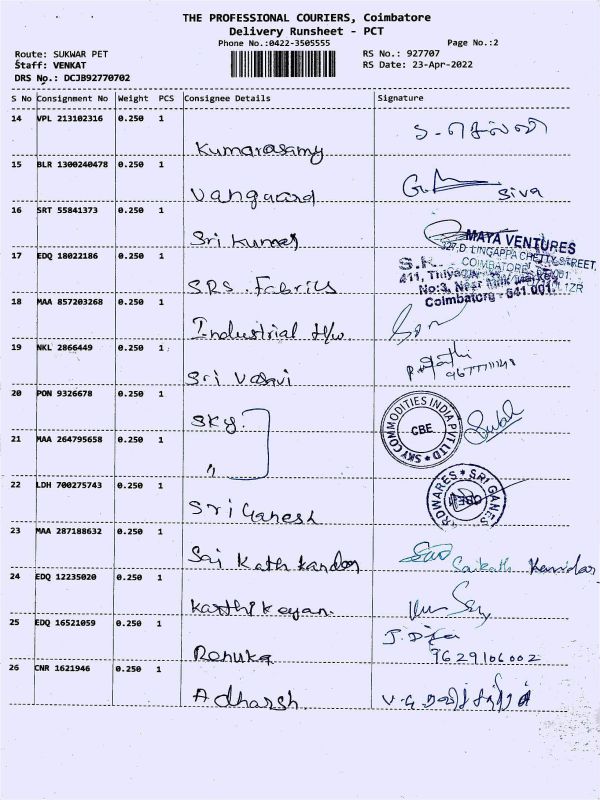 THE PROFESSIONAL COURIERS, Coimbatore
Delivery Runsheet - PCT
Phone No.:0422-3505555
Page No.:2
Route: SUKWAR PET
Staff: VENKAT
DRS No.: DCJB92770702
RS No.: 927707
RS Date: 23-Apr-2022
S No Consignment No Weight PCS Consignee Details Signature
14 VPL 213102316 0.250 1
Kumarasamy
15 BLR 1300240478 0.250 1
Vanguard Siva
16 SRT 55841373 0.250 1
Sri Kumar
MAYA VENTURES
327,D LINGAPPA CHETTY STREET,
COIMBATORE
17 EDQ 18022186 0.250 1
S.K.
411, Thiyagi
No:3, Near Milk Market
Coimbatore - 641 001.
SRS Fabrics
18 MAA 857203268 0.250 1
Industrial H/w
19 NKL 2866449 0.250 1
Sri Vasavi
20 PON 9326678 0.250 1
SKY
SKY COMMODITIES INDIA PVT LTD
CBE
21 MAA 264795658 0.250 1
"
22 LDH 700275743 0.250 1
Sri Ganesh
RDWARES * SRI GANES
CBE
23 MAA 287188632 0.250 1
Sai Kath Kandar
24 EDQ 12235020 0.250 1
Karthikeyan
25 EDQ 16521059 0.250 1
Renuka 9629106002
26 CNR 1621946 0.250 1
Adharsh